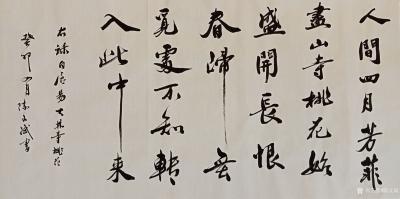 人間四月芳菲
盡山寺桃花始
盛開長恨
春歸無
覓處不知轉
入此中来
右録白居易大林寺桃花
癸卯四月陈文斌書